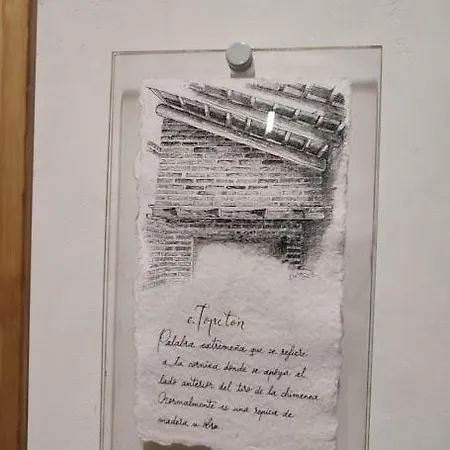 c. Topetón
Palabra extremeña que se refiere
a la cornisa donde se apoya el
lado anterior del tiro de la chimenea
Normalmente es una repisa de
madera u obra